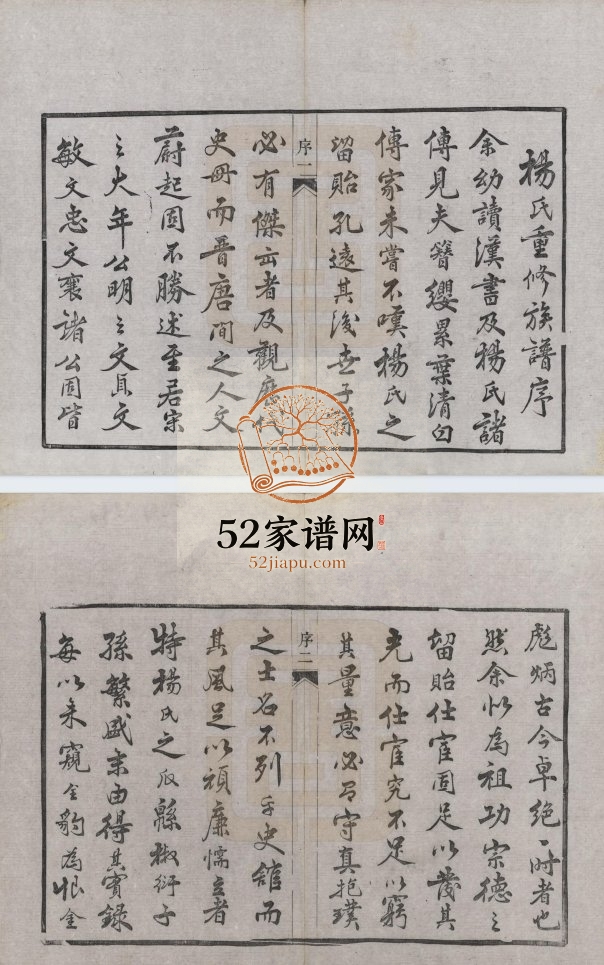 楊氏重修族譜序
余幼讀漢書及楊氏諸
傳見夫簪纓累葉清白
傳家未嘗不嘆楊氏之
留貽孔遠其後世子孫
序一
必有傑出者及觀歷代
史冊而晉唐間之人文
蔚起固不勝述至若宋
之大年公明之文貞文
敏文忠文襄諸公固皆
52家谱网
52jiapu.com
彪炳古今卓絕一時者也
然余以為祖功宗德之
留貽仕宦固足以發其
光而仕宦究不足以窮
其量意必有守真抱璞
序二
之士名不列乎史館而
其風足以頑廉懦立者
特楊氏之瓜綿椒衍子
孫繁盛末由得其實錄
每以未窺全豹為恨金